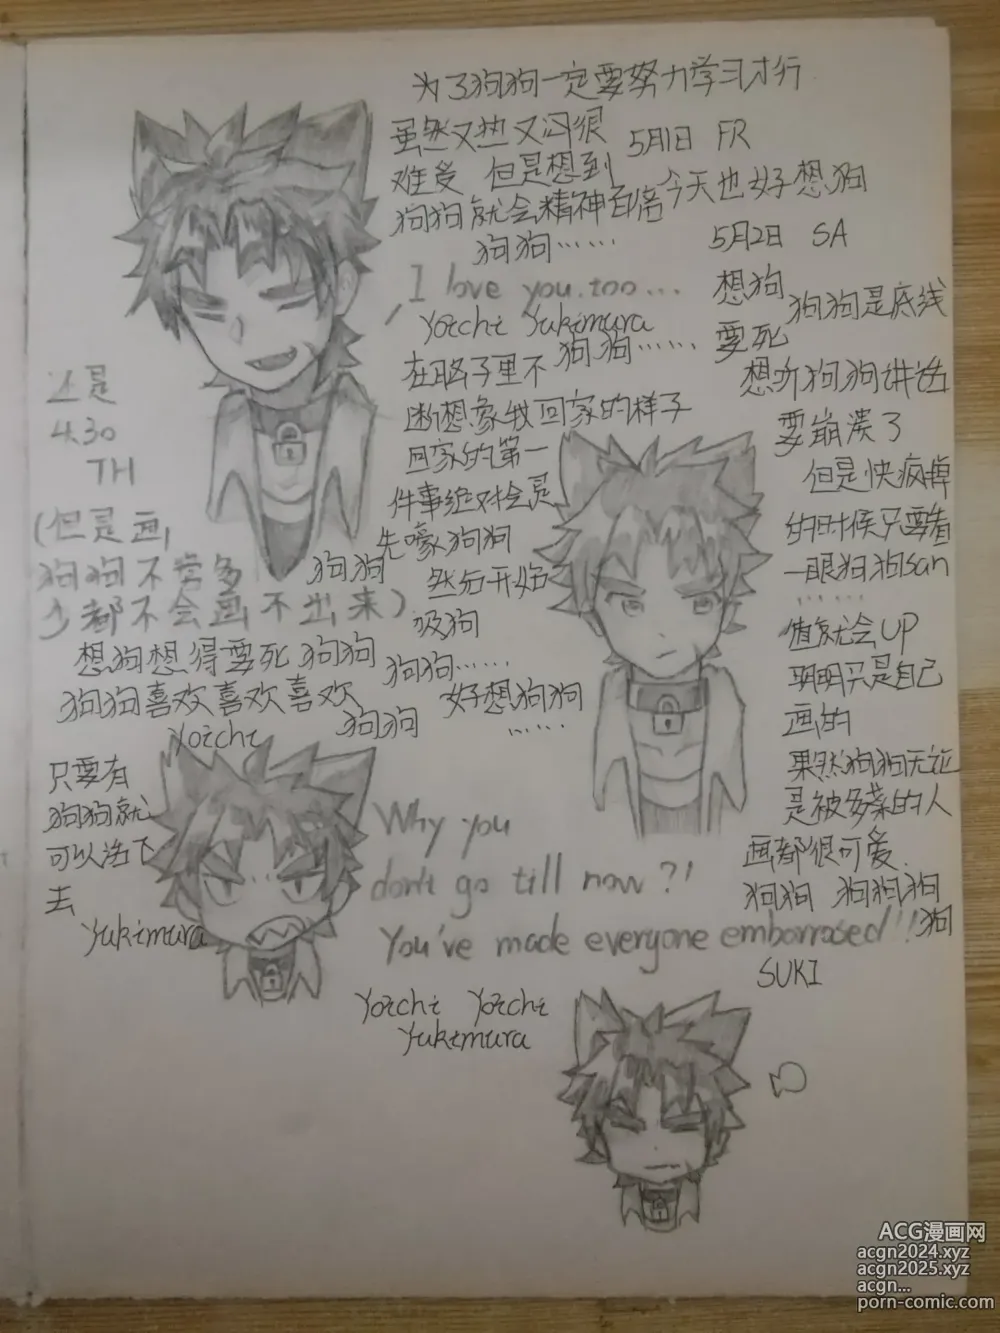 为了狗狗一定要努力学习才行
虽然又热又闷很
难受 但是想到
狗狗就会精神百倍
狗狗……
5月1日 FR
今天也好想狗
5月2日 SA
I love you.too...
Yoichi Yukimura
想狗
要死
狗狗是底线
想听狗狗讲话
要崩溃了
但是快疯掉
的时候只要看
一眼狗狗san
……
值就会UP
明明只是自己
画的
果然狗狗无论
是被多菜的人
画都很可爱
狗狗 狗狗狗
狗
SUKI
在脑子里不 狗狗……
断想象我回家的样子
回家的第一
件事绝对会是
先嚎狗狗
然后开始
吸狗
狗狗……
好想狗狗
……
还是
4.30
TH
(但是画
狗狗不管多
少都不会画不出来)
狗狗
想狗想得要死 狗狗
狗狗喜欢喜欢喜欢
狗狗
Yoichi
只要有
狗狗就
可以活下
去
Yukimura
Why you
don't go till now?!
You've made everyone embarrased!!
Yoichi Yoichi
Yukimura
ACG漫画网
acgn2024.xyz
acgn2025.xyz
acgn...
porn-comic.com